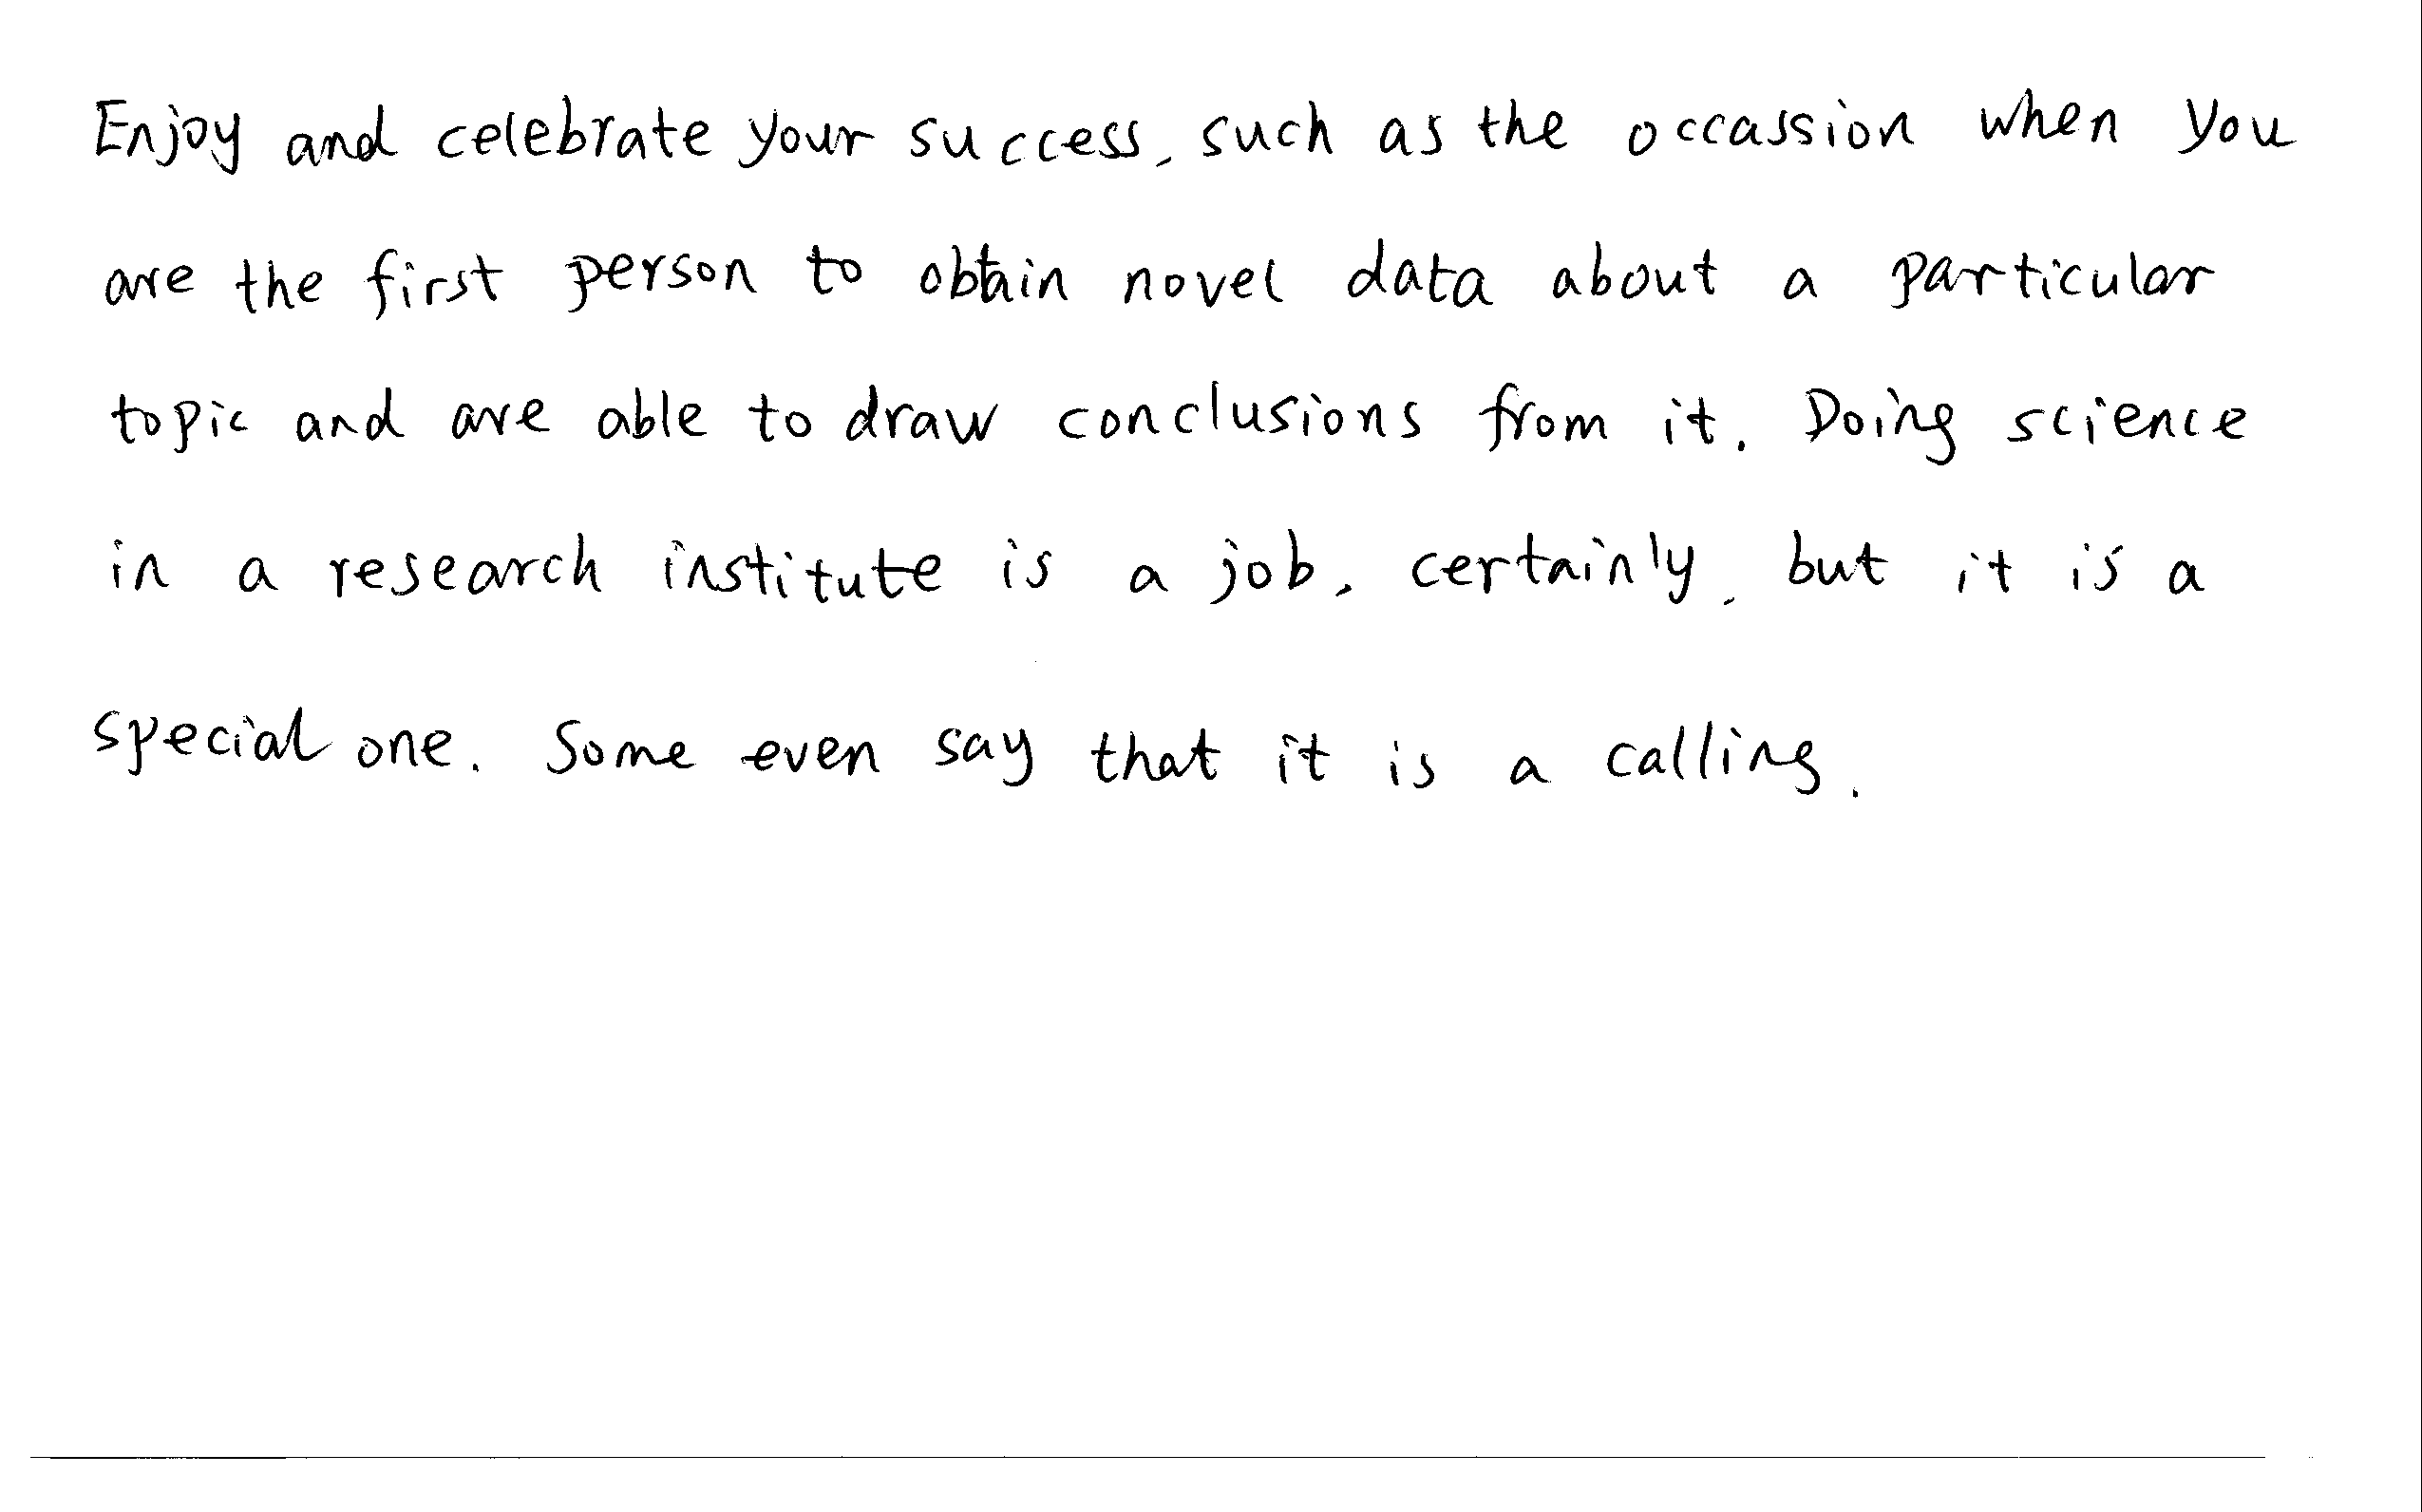 Enjoy and celebrate your success, such as the occassion when you
are the first person to obtain novel data about a particular
topic and are able to draw conclusions from it. Doing science
in a research institute is a job, certainly, but it is a
special one. Some even say that it is a calling.